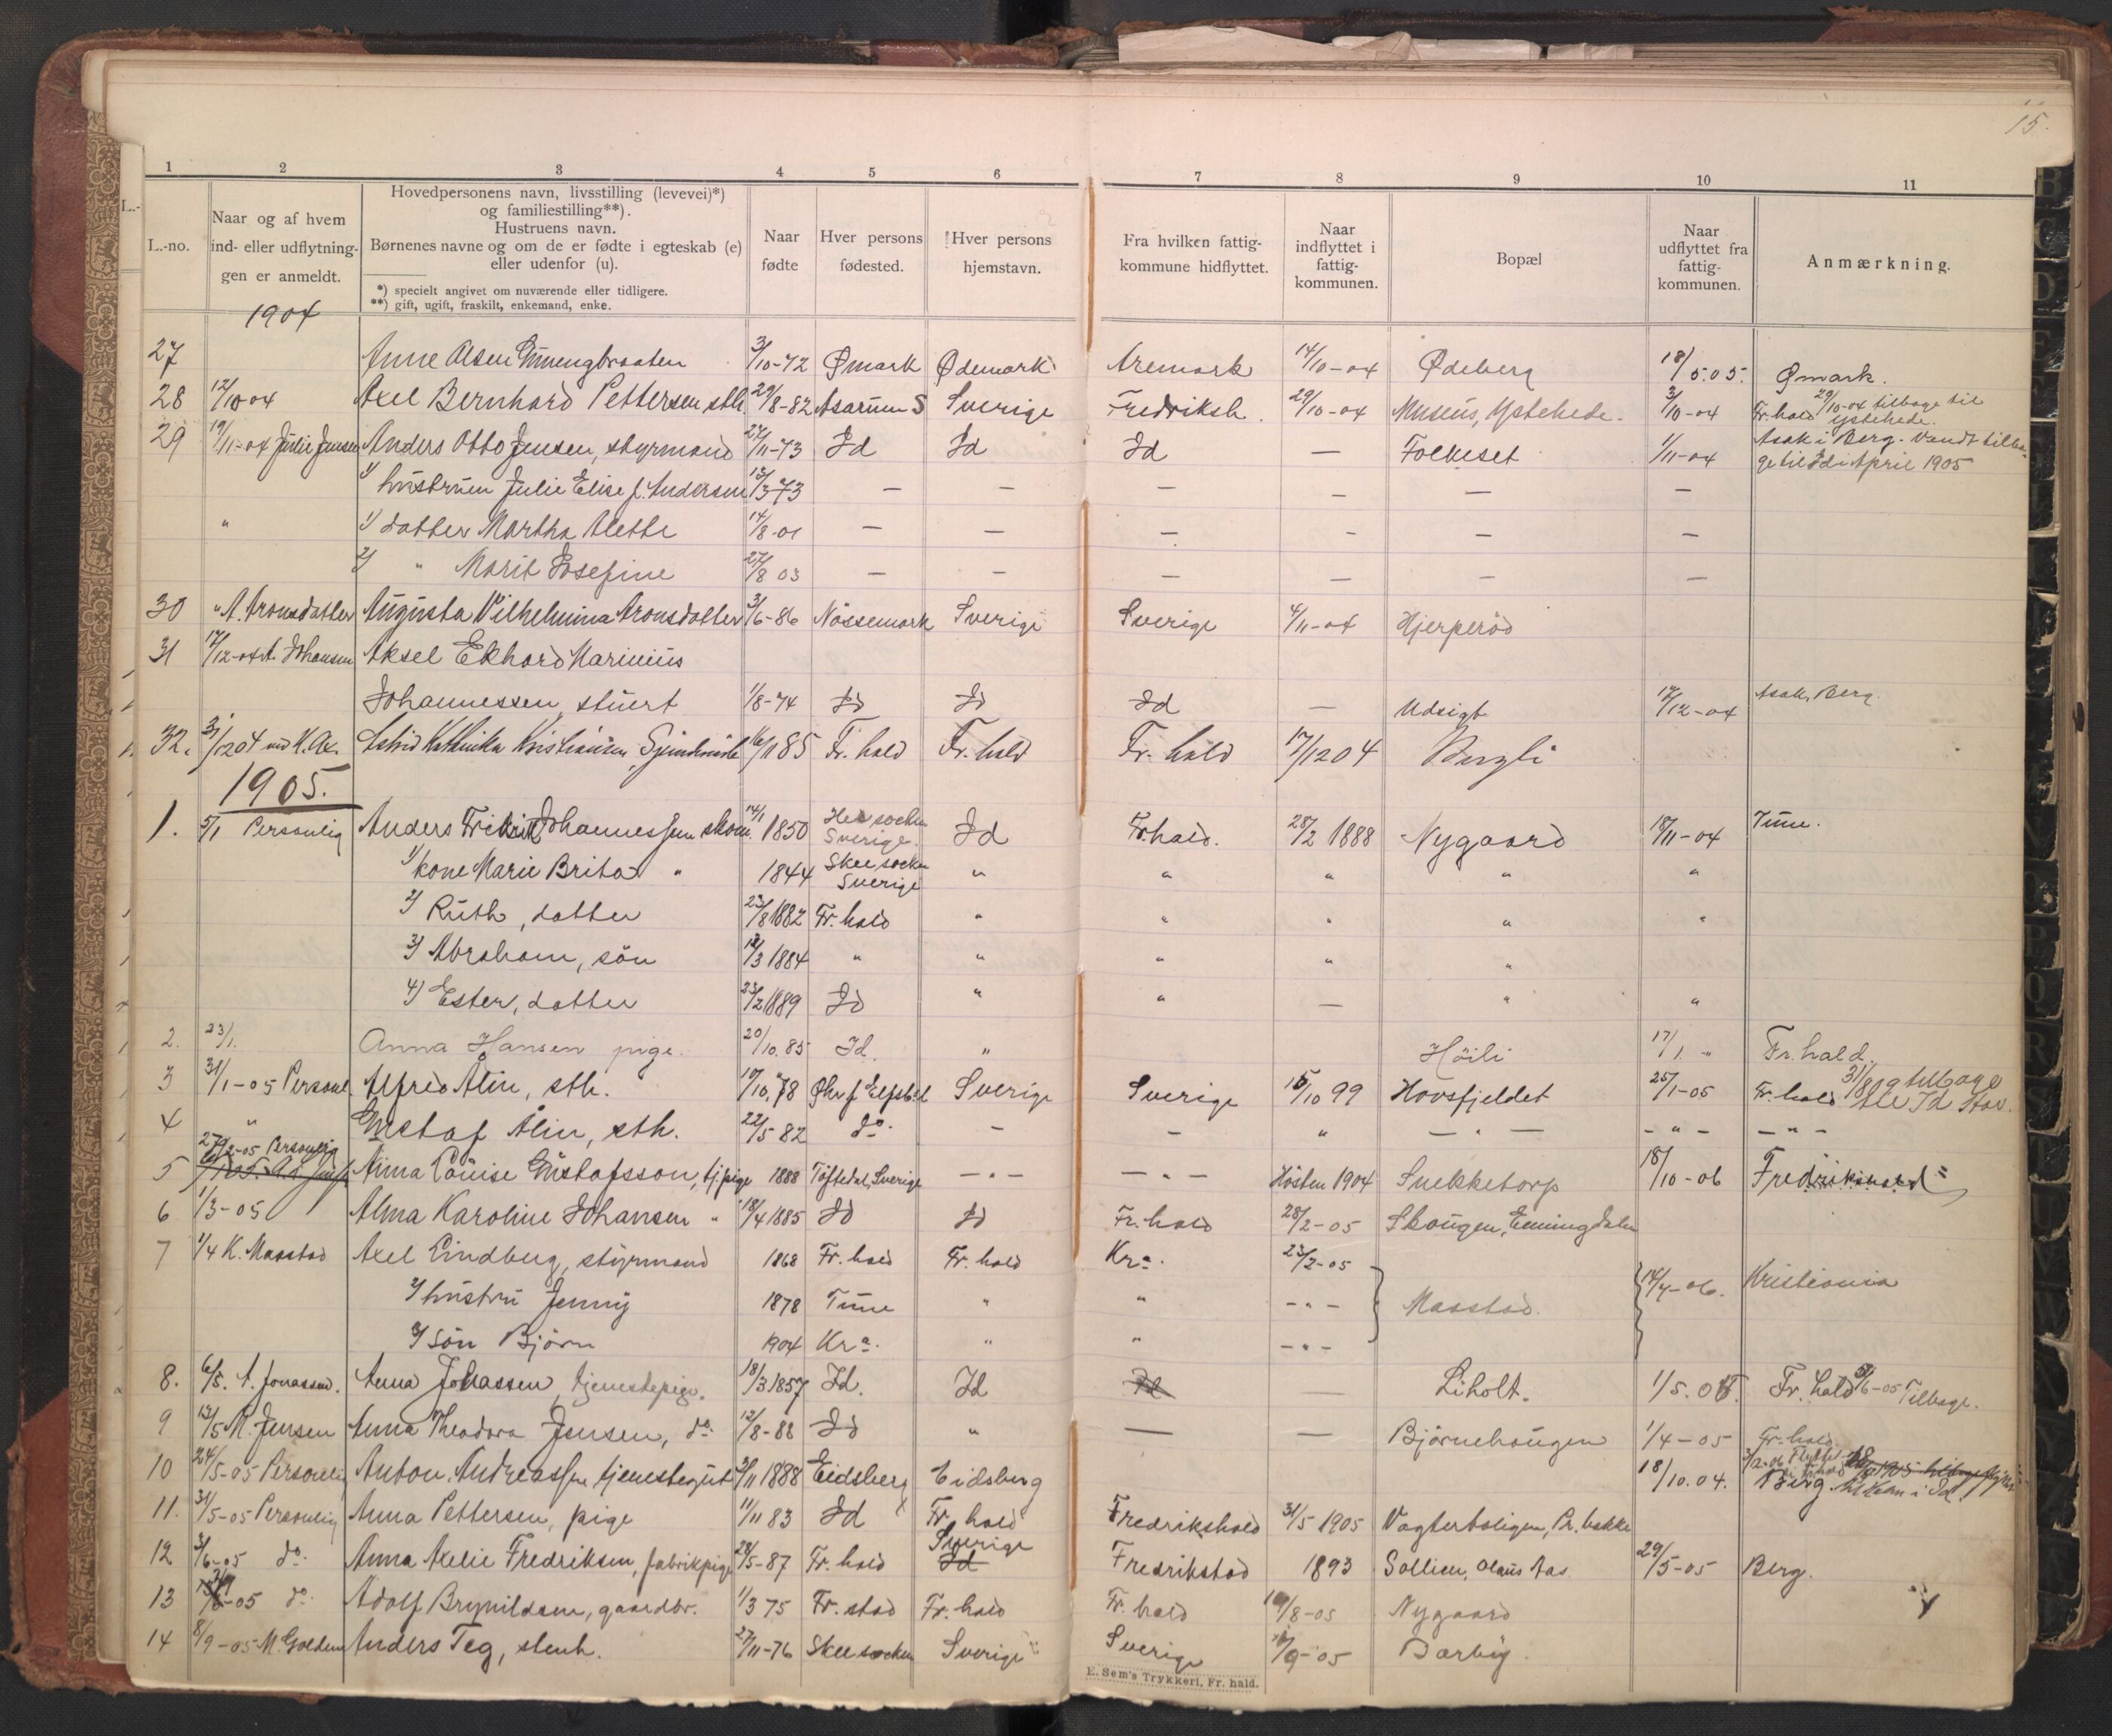 15.
1 2 3 4 5 6 7 8 9 10 11
L.-no.
Naar og af hvem
ind- eller udflytnin-
gen er anmeldt.
Hovedpersonens navn, livsstilling (levevei)*)
og familiestilling**).
Hustruens navn.
Børnenes navne og om de er fødte i egteskab (e)
eller udenfor (u).
*) specielt angivet om nuværende eller tidligere.
**) gift, ugift, fraskilt, enkemand, enke.
Naar
fødte
Hver persons
fødested.
Hver persons
hjemstavn.
Fra hvilken fattig-
kommune hidflyttet.
Naar
indflyttet i
fattig-
kommunen.
Bopæl
Naar
udflyttet fra
fattig-
kommunen.
Anmærkning.
1904
27 Anne Olsen 3/10-72 Ømark Ødemark Aremark 14/10-04 Ødeberg 18/5.05. Ømark.
28 12/10 04 Axel Bernhard Pettersen sth. 29/8-82 Asarum S Sverige Fredriksh. 29/10-04 Museus, Ystehede. 3/10-04 Fr.hald 29/10-04 tilbage til Ystehede.
29 19/11-04 Julie Jensen Anders Otto Jensen, styrmand 27/11-73 Id Id Id — Folkeset 1/11-04 Asak i Berg. Vendt tilba-
ge til Id i April 1905
1/ hustruen Julie Elise f. Andersen 13/3 73 — — — — — —
" 1/ datter Martha Alette 14/8-01 — — — — — —
2/ " Marit Josefine 27/8 03 — — — — — —
30 " A. Aronsdatter Augusta Vilhelmina Aronsdatter 3/6-86 Nössemark Sverige Sverige 4/11-04 Hjerperöd
31 17/12-04 A. Johansen Aksel Ekhard Marinius
Johannessen, stuert 1/8-74 Id Id Id — Udsigt 17/12-04 Asak, Berg.
32. 31/12 04 Astrid Kathinka Kristiansen 16/1 85 Fr. hald Fr. hald Fr. hald 17/12 04 Bergli
1905.
1. 5/1 Personlig Anders Fredrik Johannessen skom. 14/1 1850 Hed socken Sverige. Id Fr.hald. 28/2 1888 Nygaard 18/11-04 Tune.
1/ kone Marie Brita " 1844 Skee socken Sverige " " " " "
2/ Ruth, datter 23/8 1882 Fr. hald " " " " "
3/ Abraham, sön 12/3 1884 " " " " "
4/ Ester, datter 23/2 1889 Id " " — " "
2. 23/1. Anna Hansen pige. 20/10.85 Id. " Höili 17/1. " Fr. hald.
3 31/1-05 Personl. Alfred Alin, sth. 10/10.78 Sverige Sverige 15/10 99 Hovsfjeldet 25/1-05 Fr. hald 31/8 09 tilbage til Id
4 " Gustaf Alin, sth. 22/5 82 do. — — " — " — — " — — " —
5 27/2-05 Personlig Anna Louise Gustafsson, tj. pige 1888 Töftedal, Sverige — " — — " — Hösten 1904 Snekketorp 18/10-06 Fredrikshald
6 1/3-05 Alma Karoline Johansen " 18/4 1885 Id Id Fr. hald 28/2-05 Skougen, Enningdalen
7 1/4 K. Masstad Axel Lindberg, styrmand 1868 Fr. hald Fr. hald Kra. 23/2-05
2/ hustru Jenny 1878 Tune " " — " — Masstad. 14/4-06. Kristiania
3/ Sön Björn 1904 Kra. " " — " —
8. 6/5. A. Jonassen. Anna Johassen, tjenestepige. 18/3 1857 Id. Id Id — Liholt. 1/5.05. Fr. hald 3/6-05 Tilbage.
9 13/5 M. Jensen Anna Theodora Jensen, do. 12/8-88 Id " — — Björnehougen 1/4-05 Fr. hald.
10 24/5-05 Personlig Anton Andreassen tjenestegut 3/11 1888 Eidsberg Eidsberg 18/10.04. Berg.
11. 31/5-05 Personlig Anna Pettersen, pige 11/11 83 Id Fr. hald Fredrikshald 31/5 1905 Vagterboligen, Pr. bakke
12 3/6-05 do. Anna Axelie Fredriksen, fabrikpige 28/5-87 Fr. hald Sverige Id Fredrikstad 1893 Sollien, Olaus Aas 29/5-05 Berg.
13 -05 do. Adolf Brynildsen, gaardbr. 1/3 75 Fr. stad Fr. hald Fr. hald 10/8-05 Nygaard
14 8/9-05 M. Golden Anders Teg, stenh. 27/11-76 Skee socken Sverige Sverige /9-05 Darby.
E. Sem's Trykkeri, Fr. hald.